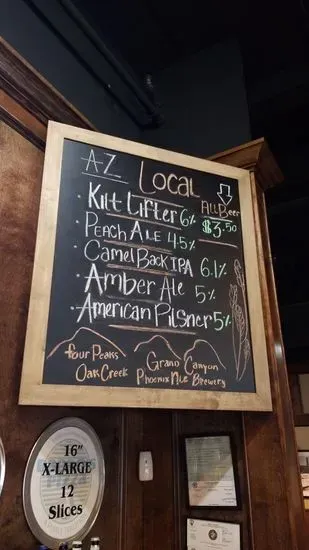 AZ Local
All Beer
$3.50
Kilt Lifter 6%
Peach Ale 4.5%
Camel Back IPA 6.1%
Amber Ale 5%
American Pilsner 5%
four Peaks
Oak Creek
Grand Canyon
Phoenix Ale Brewery
16"
X-LARGE
12
Slices